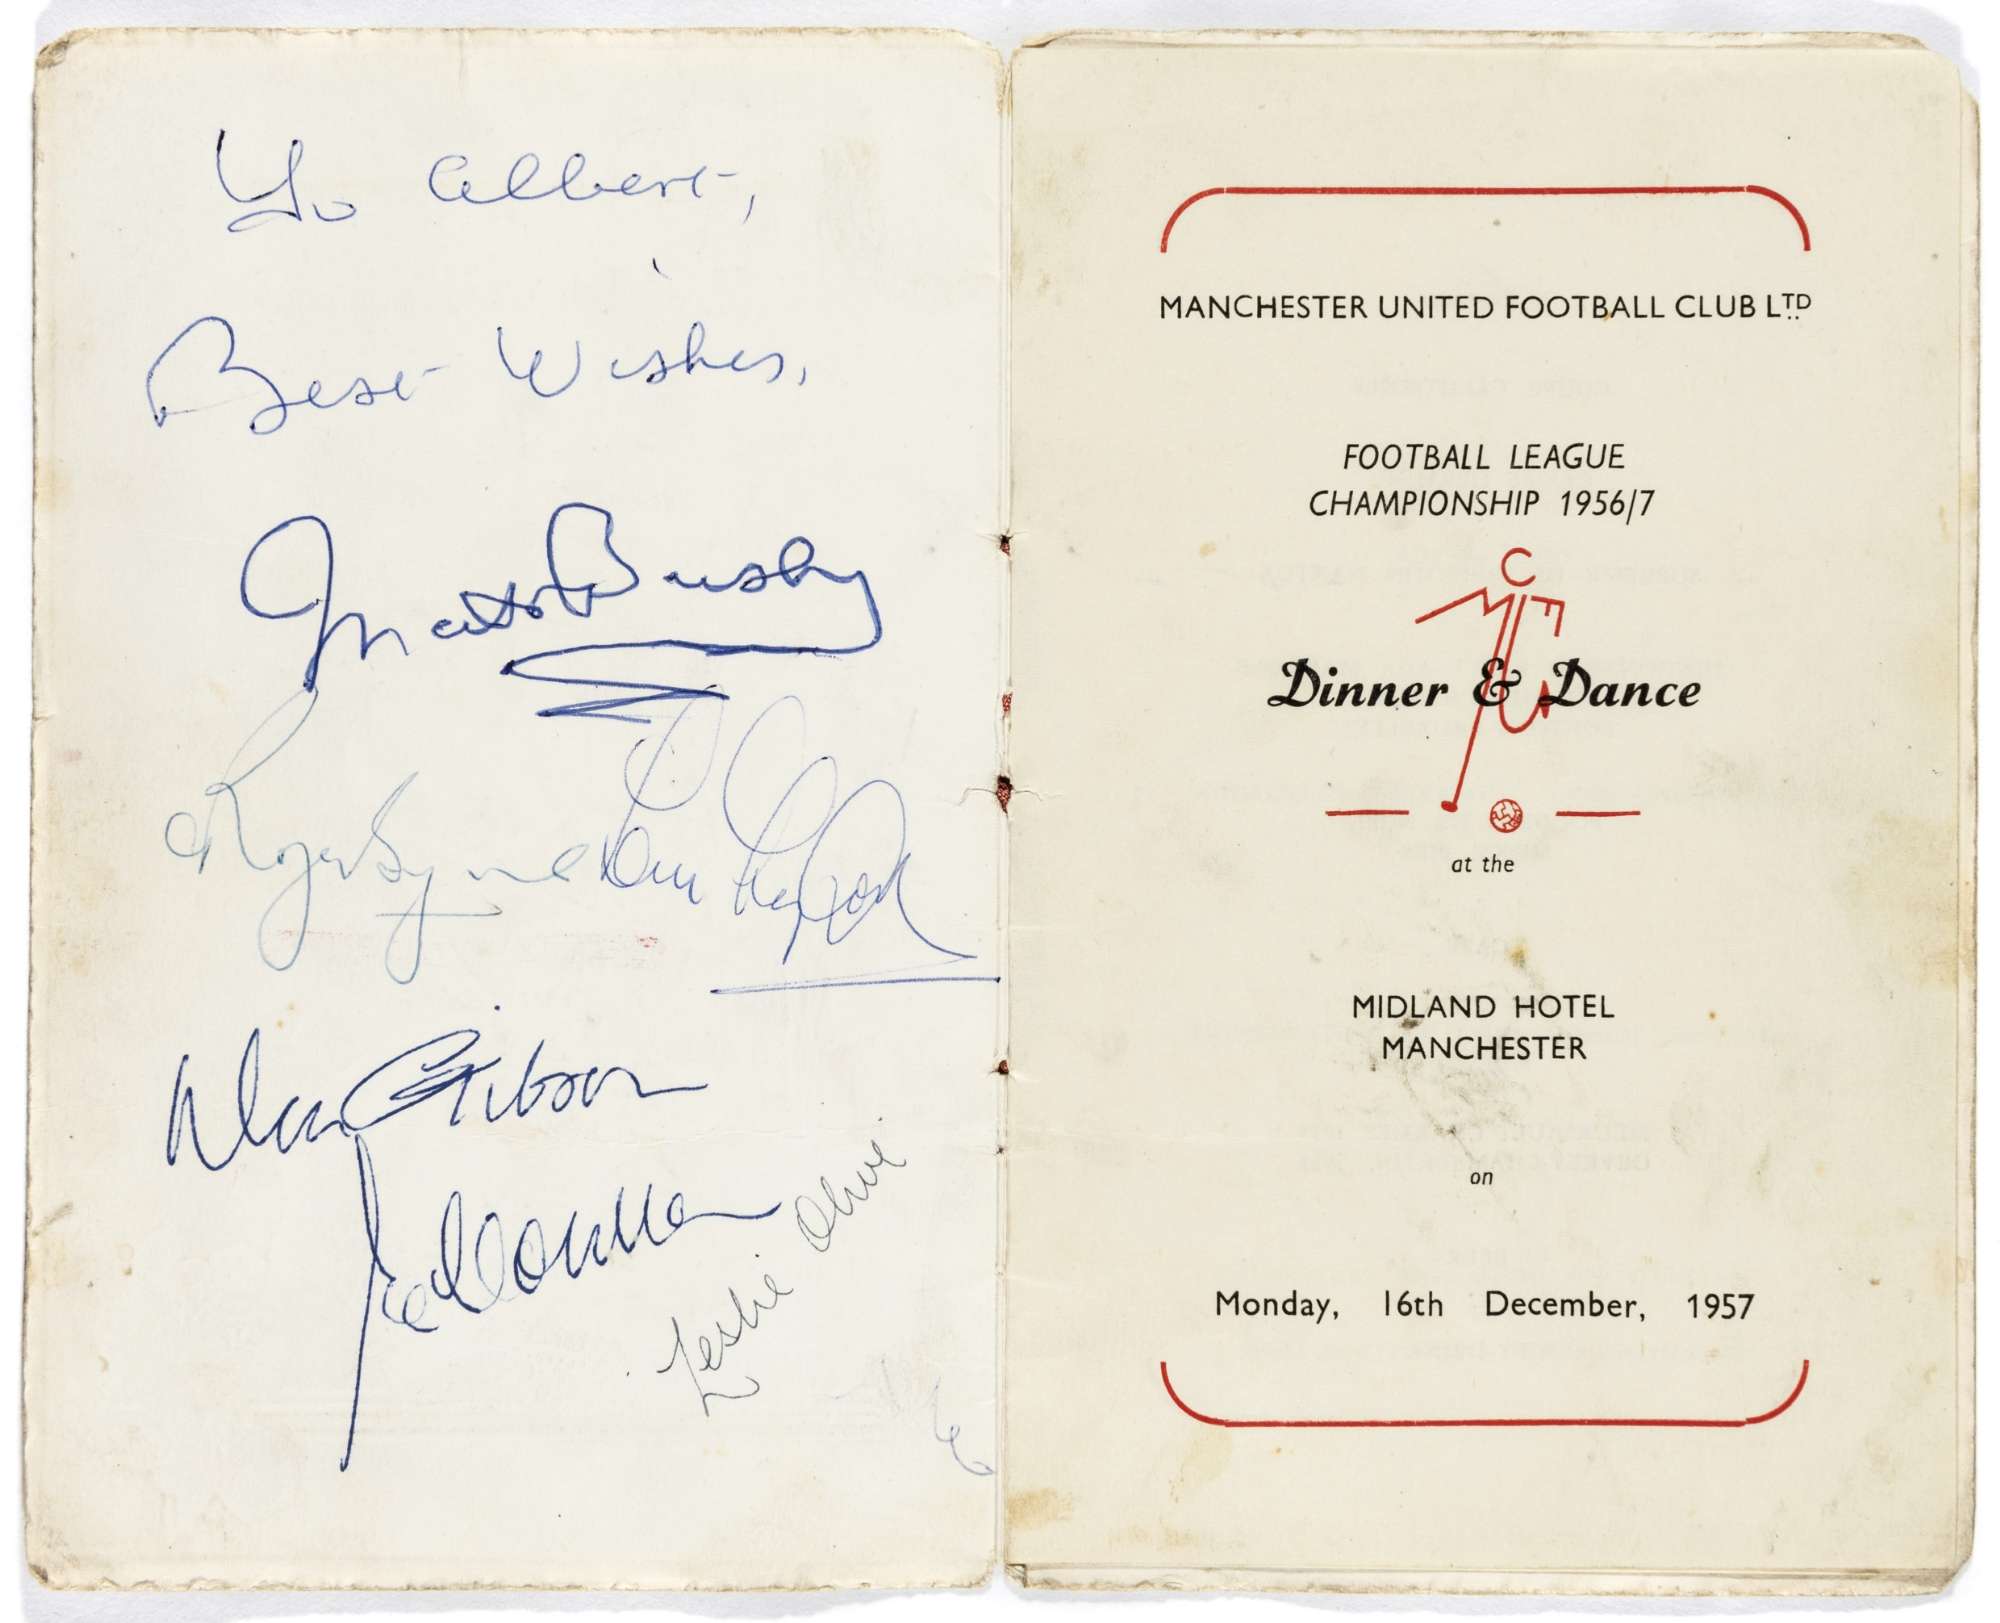 To Albert,
Best Wishes,
Matt Busby
Roger Byrne
Alan Gibson
Leslie Olive
MANCHESTER UNITED FOOTBALL CLUB LTD
FOOTBALL LEAGUE
CHAMPIONSHIP 1956/7
Dinner & Dance
at the
MIDLAND HOTEL
MANCHESTER
on
Monday, 16th December, 1957